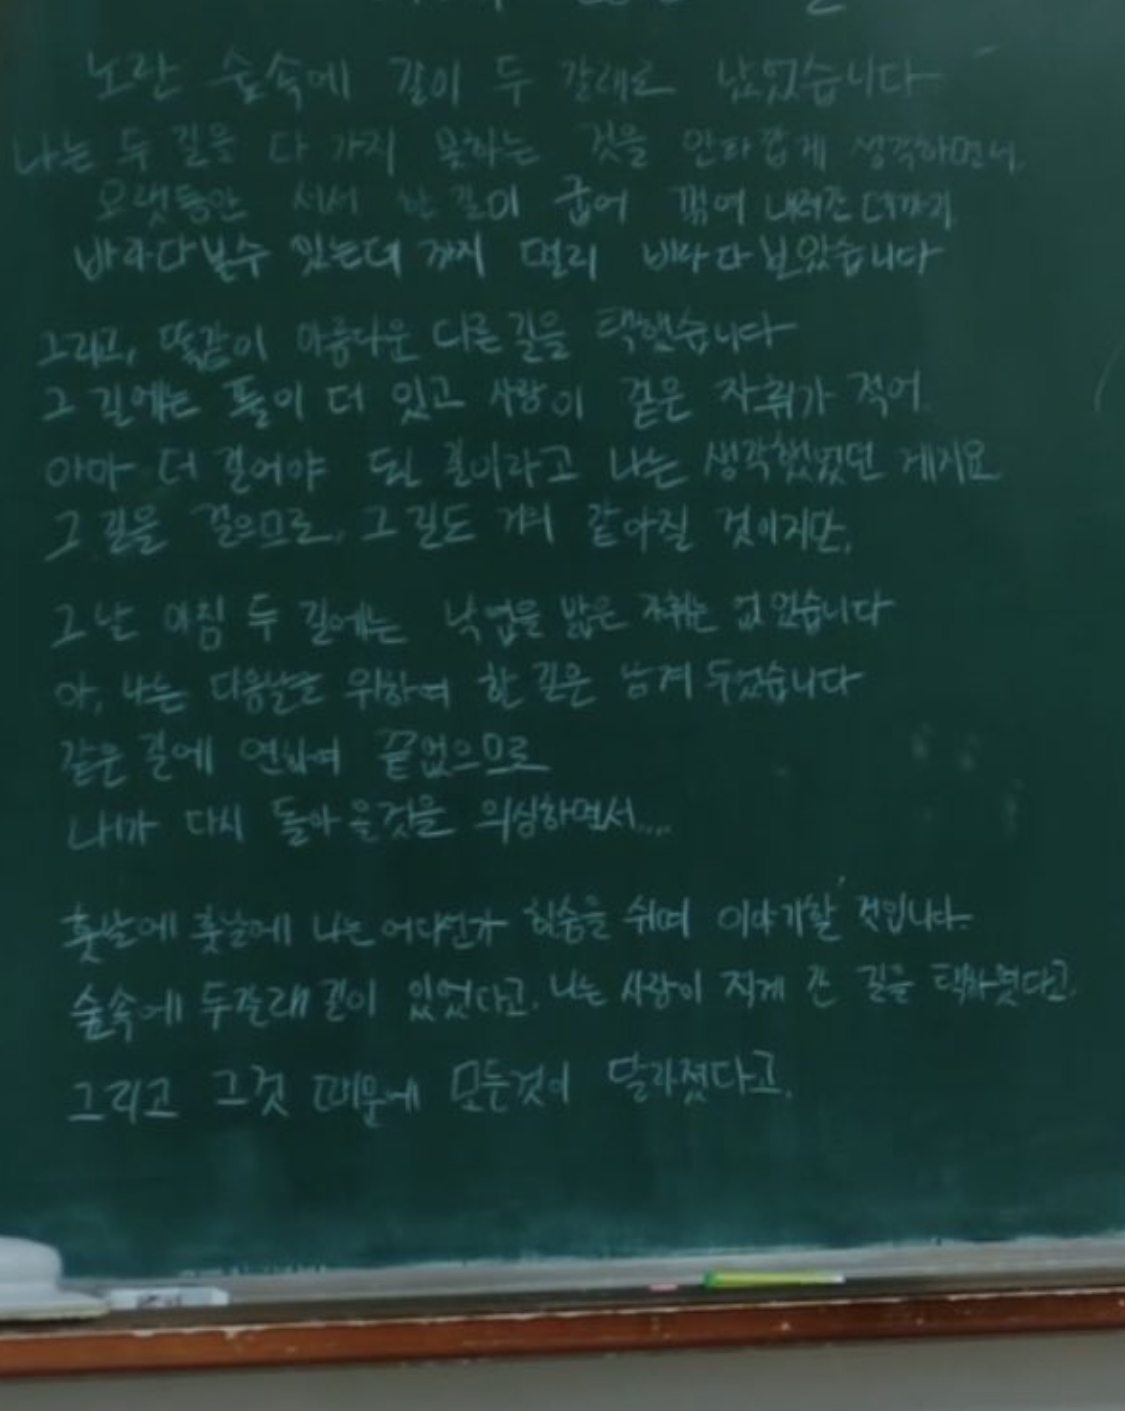 노란 숲속에 길이 두 갈래로 났었습니다
나는 두 길을 다 가지 못하는 것을 안타깝게 생각하면서,
오랫동안 서서 한 길이 굽어 꺾여 내려간 데까지
바라다볼수 있는데 까지 멀리 바라다 보았습니다
그리고, 똑같이 아름다운 다른 길을 택했습니다
그 길에는 풀이 더 있고 사람이 걸은 자취가 적어.
아마 더 걸어야 될 길이라고 나는 생각했었던 게지요
그 길을 걸으므로, 그 길도 거의 같아질 것이지만,
그 날 아침 두 길에는 낙엽을 밟은 자취는 없었습니다
아, 나는 다음날을 위하여 한 길은 남겨 두었습니다
같은 길에 연하여 끝없으므로
내가 다시 돌아 올것을 의심하면서....
훗날에 훗날에 나는 어디선가 한숨을 쉬며 이야기할 것입니다.
숲속에 두갈래 길이 있었다고, 나는 사람이 적게 간 길을 택하였다고.
그리고 그것 때문에 모든것이 달라졌다고.